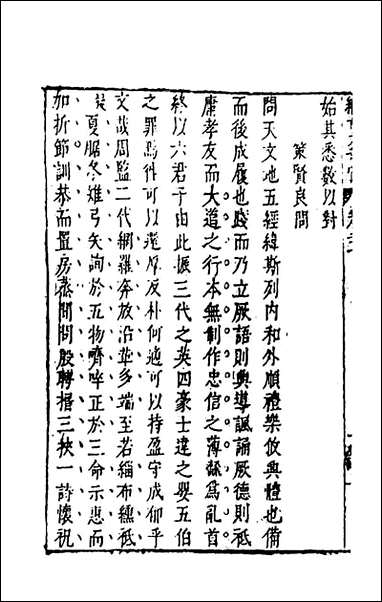 始其悉數以對
策賢良問
問天文地五經緯斯列內和外順禮樂攸興體也備
而後成履也踐而乃立厥語則興導諷誦厥德則祗
庸孝友而大道之行本無制作忠信之薄飜為亂首
終以六君子由此振三代之英四豪士達之嬰五伯
之罪焉件可以還厚反朴何適可以持盈守成仰乎
文哉周監二代網羅奔放沿革多端至若緇布纁裳
夏腒冬雉弓矢詢於五物嚌啐正於三命示惠而
加折節訓恭而置房烝間問股聘搢三挾一詩懷祝